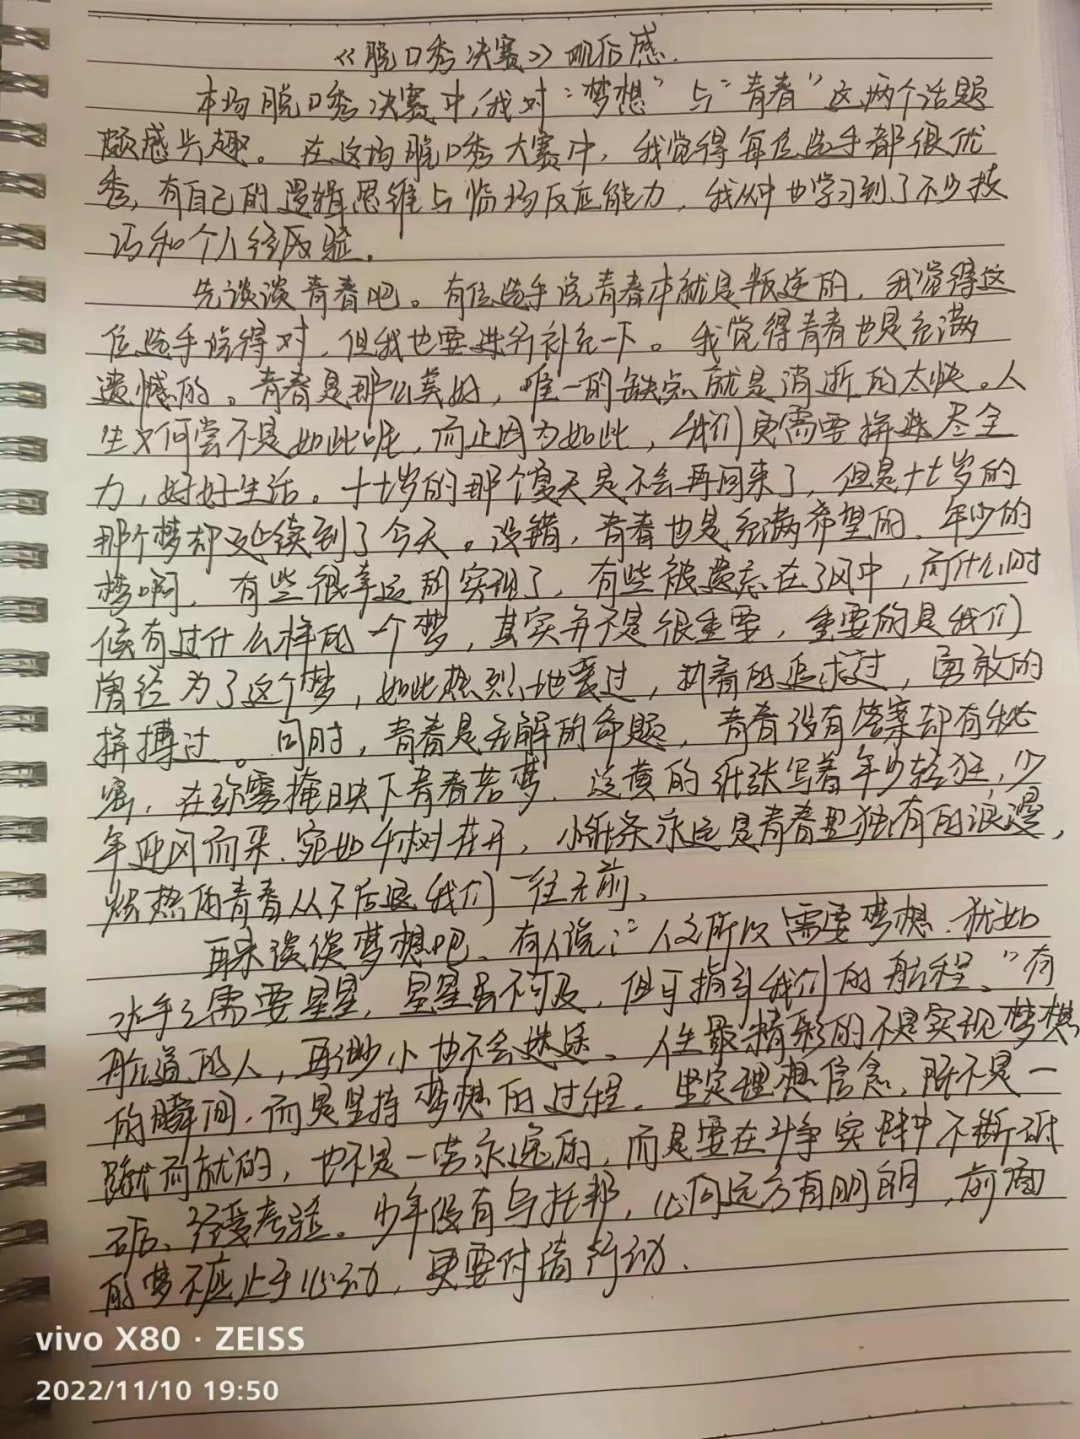 《脱口秀决赛》观后感.
本场脱口秀决赛中,我对“梦想”与“青春”这两个话题
颇感兴趣。在这场脱口秀大赛中,我觉得每位选手都很优
秀,有自己的逻辑思维与临场反应能力,我从中也学习到了不少技
巧和个人经历经验。
先谈谈青春吧。有位选手说青春本就是叛逆的,我觉得这
位选手说得对,但我也要进行补充一下。我觉得青春也是充满
遗憾的。青春是那么美好,唯一的缺点就是消逝的太快。人
生又何尝不是如此呢,而正因为如此,我们更需要拼尽全
力,好好生活。十七岁的那个夏天是不会再回来了,但是十七岁的
那个梦却延续到了今天。没错,青春也是充满希望的,年少的
梦啊,有些很幸运的实现了,有些被遗忘在了风中,而什么时
候有过什么样的一个梦,其实并不是很重要,重要的是我们
曾经为了这个梦,如此热烈地爱过,执着的追求过,勇敢的
拼搏过。同时,青春是无解的命题,青春没有答案却有秘
密,在弥雾掩映下青春若梦,泛黄的纸张写着年少轻狂,少
年迎风而来,宛如千树花开,小纸条永远是青春里独有的浪漫,
炽热的青春从不后退我们一往无前、
再来谈谈梦想吧、有人说:“人之所以需要梦想,犹如
水手之需要星星,星星虽不可及,但可指引我们的航程。”有
航道的人,再渺小也不会迷途。人生最精彩的不是实现梦想
的瞬间,而是坚持梦想的过程。坚定理想信念,既不是一
蹴而就的,也不是一劳永逸的,而是要在斗争实践中不断砥
砺、经受考验。少年没有乌托邦,心向远方有明朗,前面
的梦不应止于心动,更要付诸行动、
vivo X80 · ZEISS
2022/11/10 19:50